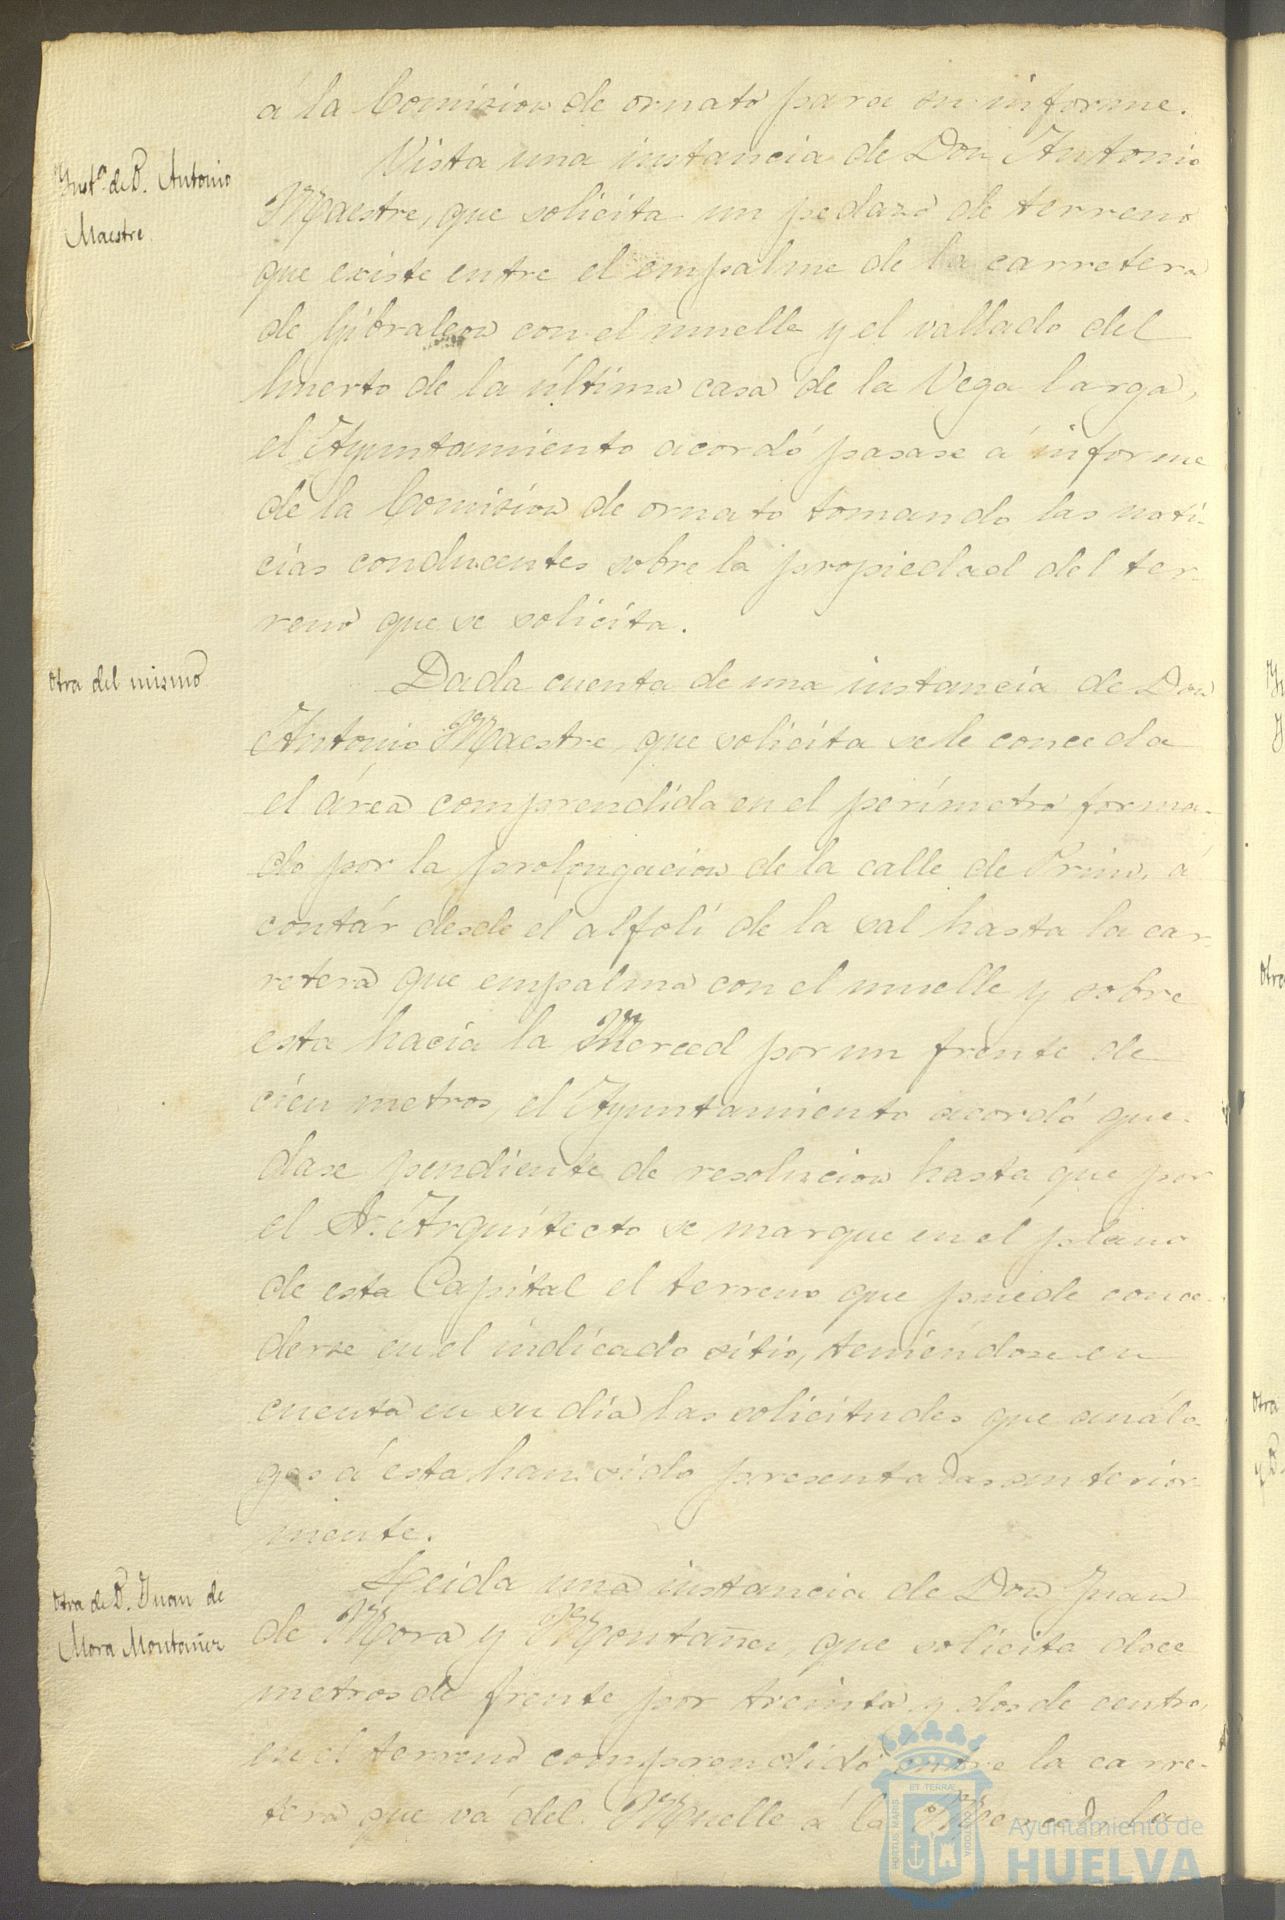 á la Comision de ornato para su informe.
Inst.ª de D. Antonio
Maestre
Vista una instancia de Don Antonio
Maestre, que solicita un pedazo de terreno
que existe entre el empalme de la carretera
de Gibraleon con el muelle y el vallado del
huerto de la última casa de la Vega larga,
el Ayuntamiento acordó pasase á informe
de la Comision de ornato tomando las noti-
cias conducentes sobre la propiedad del ter-
reno que se solicita.
Otra del mismo
Dada cuenta de una instancia de Don
Antonio Maestre, que solicita se le conceda
el área comprendida en el perímetro forma-
do por la prolongacion de la calle de Prim, á
contár desde el alfolí de la sal hasta la car-
retera que empalma con el muelle y sobre
esta hacia la Merced por un frente de
cien metros, el Ayuntamiento acordó que-
dase pendiente de resolucion hasta que por
el Sr. Arquitecto se marque en el plano
de esta Capital el terreno que puede conce-
derse en el indicado sitio, teniéndose en
cuenta en su día las solicitudes que análo-
gas á esta han sido presentadas anterior-
mente.
Otra de D. Juan de
Mora Montañer
Leida una instancia de Don Juan
de Mora y Montañer que solicita doce
metros de frente por treinta y dos de centro,
en el terreno comprendido entre la carre-
tera que vá del Muelle á la Merced, la
Otra
Otra
y D.
PORTUS MARIS
ET TERRÆ
CUSTODIA
Ayuntamiento de
HUELVA